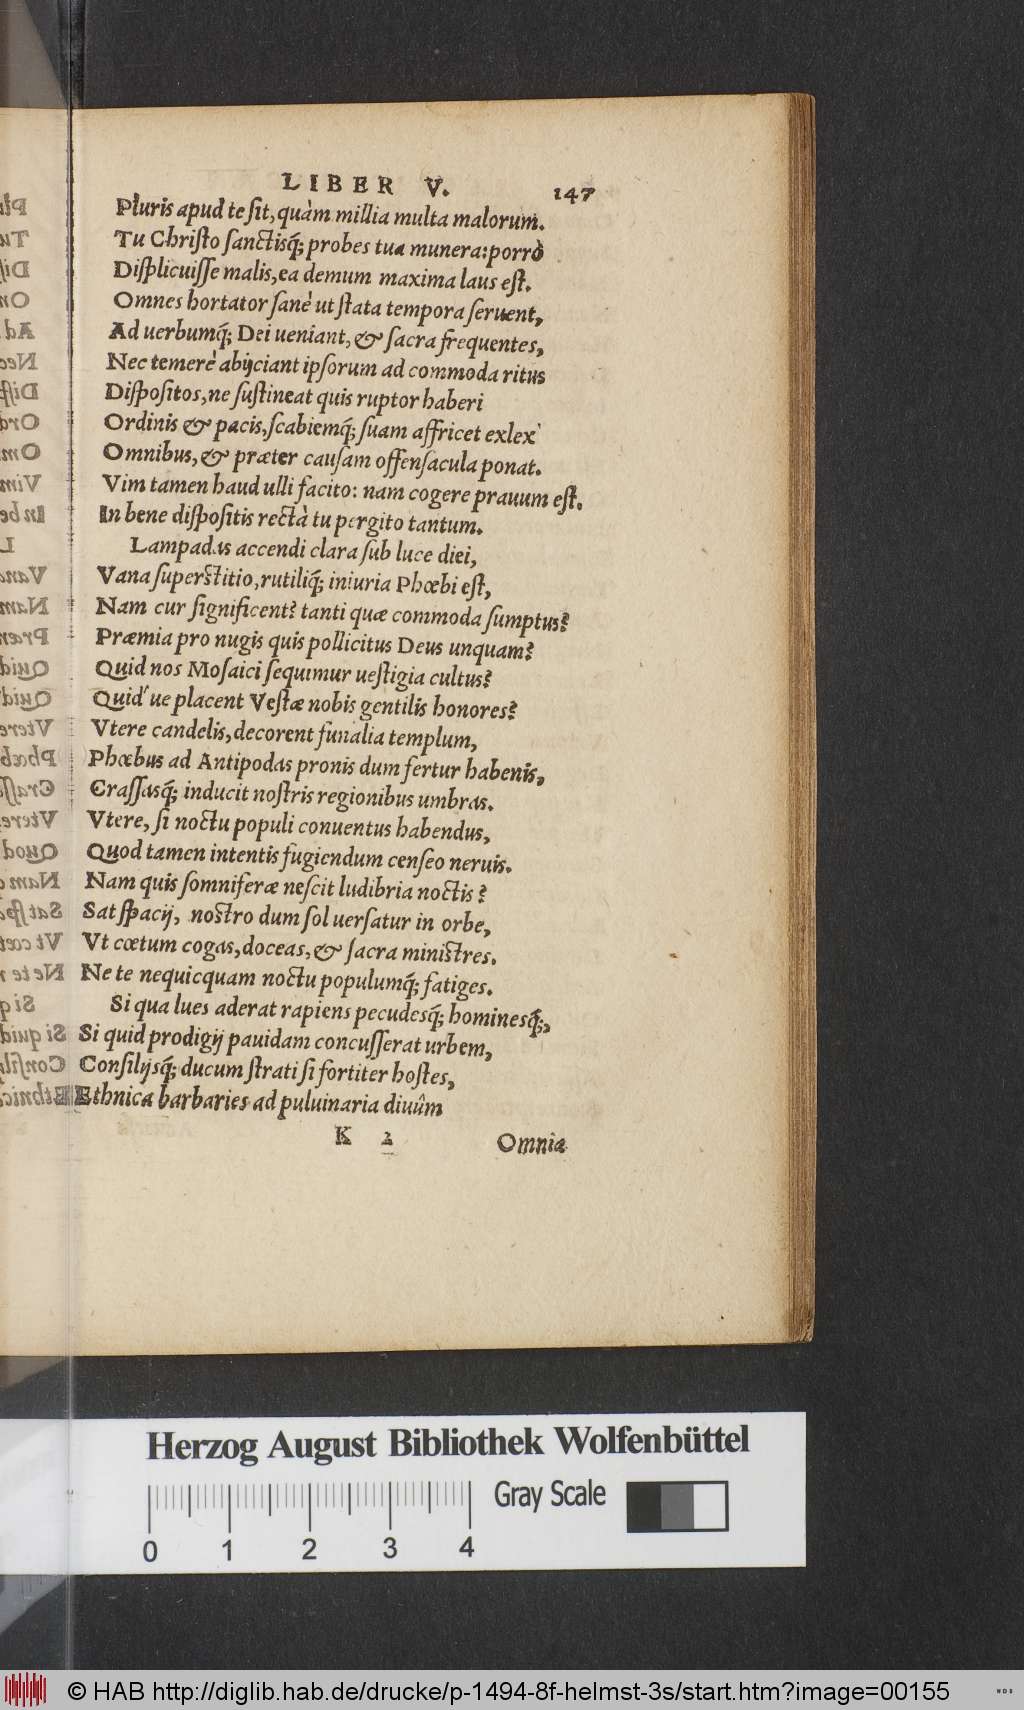 LIBER V. 147
Pluris apud te ſit, quàm millia multa malorum.
Tu Chriſto ſanctisq́; probes tua munera: porrò
Diſplicuiſſe malis, ea demum maxima laus eſt.
Omnes hortator ſanè ut ſtata tempora ſeruent,
Ad uerbumq́; Dei ueniant, & ſacra frequentes,
Nec temerè abijciant ipſorum ad commoda ritus
Diſpoſitos, ne ſuſtineat quis ruptor haberi
Ordinis & pacis, ſcabiemq́; ſuam affricet exlex
Omnibus, & præter cauſam offenſacula ponat.
Vim tamen haud ulli facito: nam cogere prauum eſt.
In bene diſpoſitis rectà tu pergito tantum.
Lampadas accendi clara ſub luce diei,
Vana ſuperſtitio, rutiliq́; iniuria Phœbi eſt,
Nam cur ſignificent? tanti quæ commoda ſumptus?
Præmia pro nugis quis pollicitus Deus unquam?
Quid nos Moſaici ſequimur ueſtigia cultus?
Quid´ue placent Veſtæ nobis gentilis honores?
Vtere candelis, decorent funalia templum,
Phœbus ad Antipodas pronis dum fertur habenis,
Craſſasq́; inducit noſtris regionibus umbras.
Vtere, ſi noctu populi conuentus habendus,
Quod tamen intentis fugiendum cenſeo neruis.
Nam quis ſomniferæ neſcit ludibria noctis?
Sat ſpacij, noſtro dum ſol uerſatur in orbe,
Vt cœtum cogas, doceas, & ſacra miniſtres.
Ne te nequicquam noctu populumq́; fatiges.
Si qua lues aderat rapiens pecudesq́; hominesq́;,
Si quid prodigij pauidam concuſſerat urbem,
Conſilijsq́; ducum ſtrati ſi fortiter hoſtes,
Ethnica barbaries ad puluinaria diuûm
K 2 Omnia
Herzog August Bibliothek Wolfenbüttel
Gray Scale
0 1 2 3 4
© HAB http://diglib.hab.de/drucke/p-1494-8f-helmst-3s/start.htm?image=00155